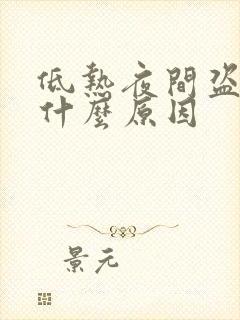 低熱夜間盜
什麼原因
景元